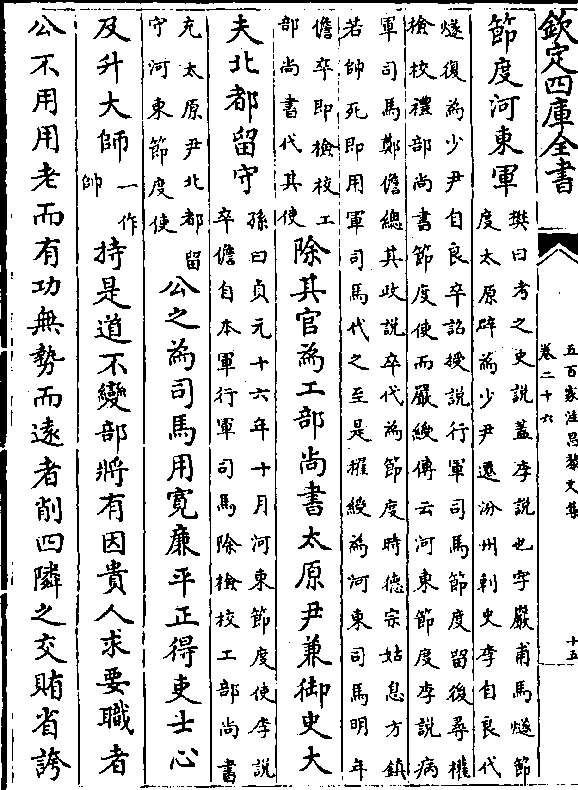 欽定四庫全書
五百家注昌黎文集
卷二十六
十五
節度河東軍
樊曰考之史說蓋李說也字嚴甫馬燧節
度太原辟為少尹遷汾州刺史李自良代
燧復為少尹自良卒詔授說行軍司馬節度留後尋權
檢校禮部尚書節度使而嚴綬傳云河東節度李說病
軍司馬鄭儋總其政說卒代為節度時德宗姑息方鎮
若帥死即用軍司馬代之至是擢綬為河東司馬明年
儋卒即檢校工
部尚書代其使
除其官為工部尚書太原尹兼御史大
夫北都留守
孫曰貞元十六年十月河東節度使李說
卒儋自本軍行軍司馬除檢校工部尚書
充太原尹北都留
守河東節度使
公之為司馬用寛廉平正得吏士心
及升大師
一作
帥
持是道不變部將有因貴人求要職者
公不用用老而有功無勢而遠者削四隣之交賄省誇